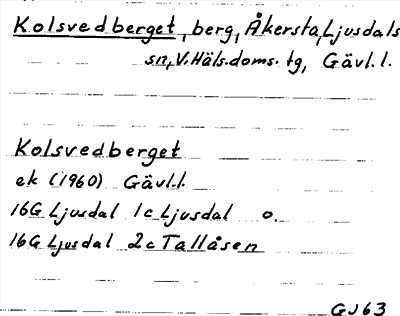 Kolsvedberget, berg, Åkersta, Ljusdals
sn, V. Häls. doms. tg, Gävl. l.
Kolsvedberget
ek (1960) Gävl.l.
16G Ljusdal 1c Ljusdal o.
16G Ljusdal 2c Tallåsen
GJ63